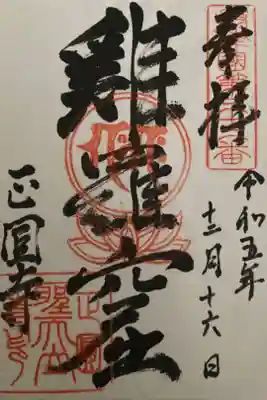 奉拝
令和五年
十二月十六日
雞羅窟
正圓寺